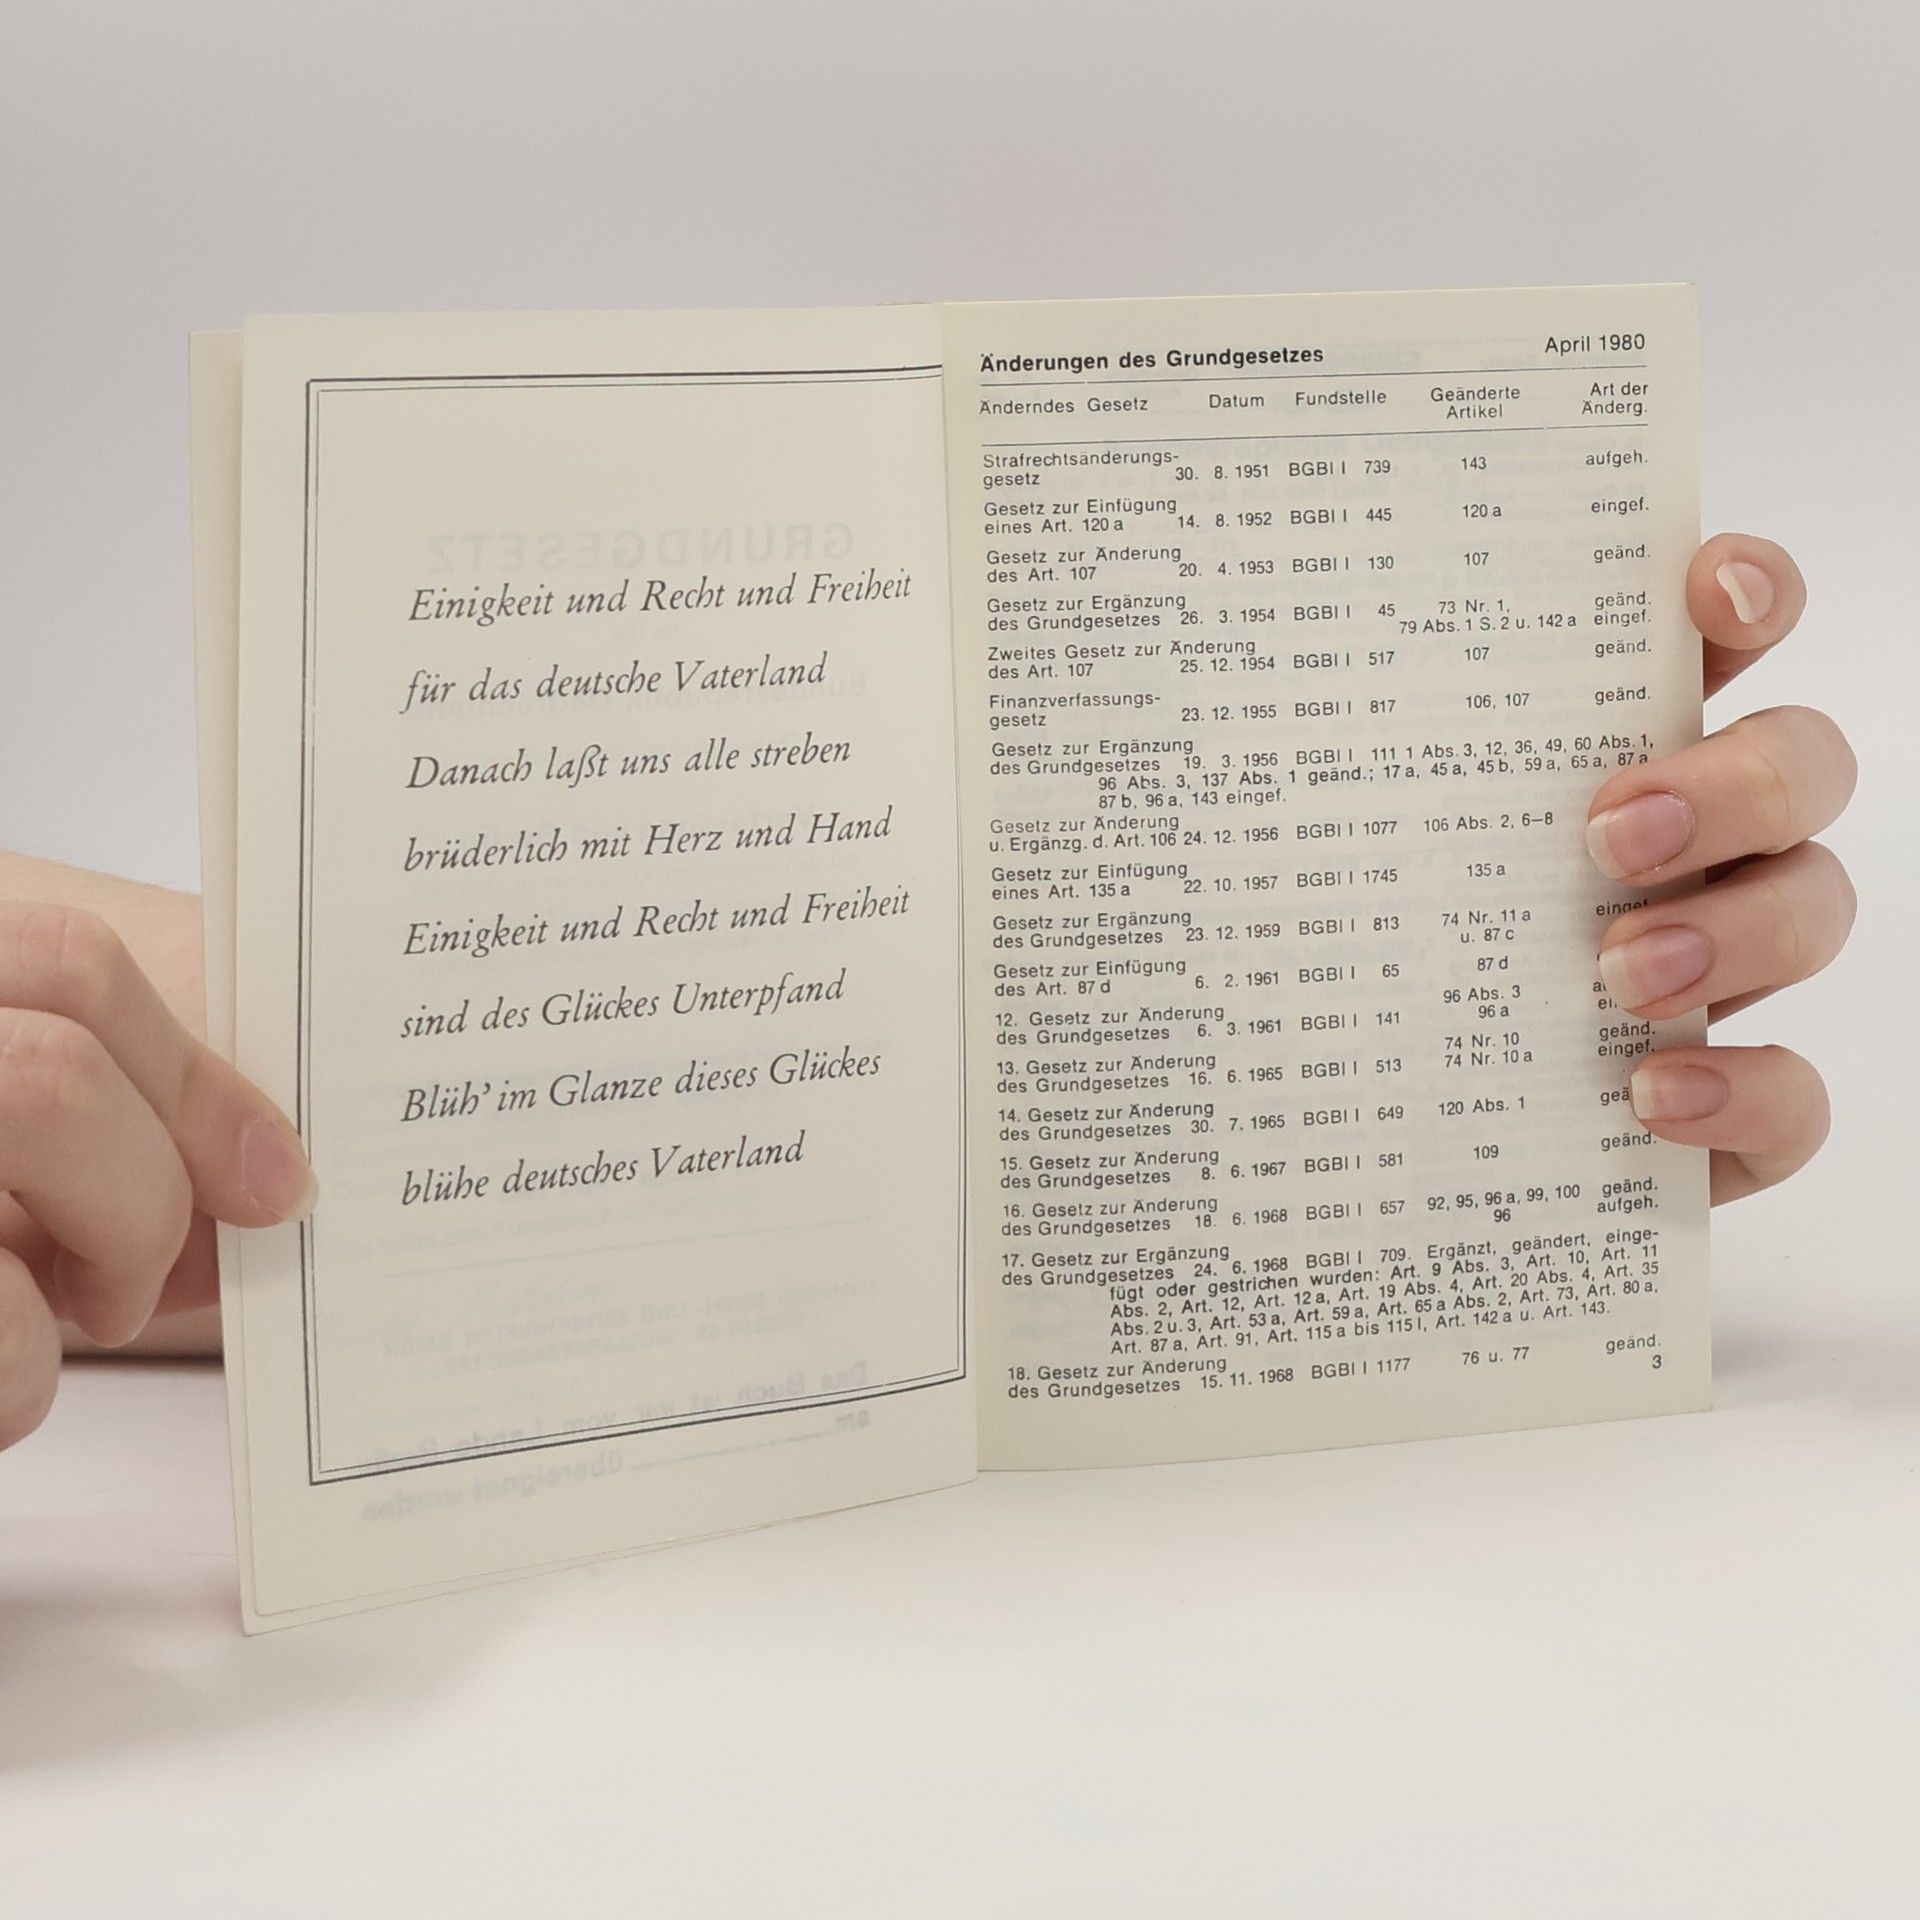 Einigkeit und Recht und Freiheit
für das deutsche Vaterland
Danach laßt uns alle streben
brüderlich mit Herz und Hand
Einigkeit und Recht und Freiheit
sind des Glückes Unterpfand
Blüh’ im Glanze dieses Glückes
blühe deutsches Vaterland
Änderungen des Grundgesetzes April 1980
Änderndes Gesetz Datum Fundstelle Geänderte Artikel Art der Änderg.
Strafrechtsänderungs-
gesetz 30. 8. 1951 BGBl I 739 143 aufgeh.
Gesetz zur Einfügung
eines Art. 120 a 14. 8. 1952 BGBl I 445 120 a eingef.
Gesetz zur Änderung
des Art. 107 20. 4. 1953 BGBl I 130 107 geänd.
Gesetz zur Ergänzung 73 Nr. 1, geänd.
des Grundgesetzes 26. 3. 1954 BGBl I 45 79 Abs. 1 S. 2 u. 142 a eingef.
Zweites Gesetz zur Änderung
des Art. 107 25. 12. 1954 BGBl I 517 107 geänd.
Finanzverfassungs-
gesetz 23. 12. 1955 BGBl I 817 106, 107 geänd.
Gesetz zur Ergänzung
des Grundgesetzes 19. 3. 1956 BGBl I 111 1 Abs. 3, 12, 36, 49, 60 Abs. 1,
96 Abs. 3, 137 Abs. 1 geänd.; 17 a, 45 a, 45 b, 59 a, 65 a, 87 a
87 b, 96 a, 143 eingef.
Gesetz zur Änderung
u. Ergänzg. d. Art. 106 24. 12. 1956 BGBl I 1077 106 Abs. 2, 6–8
Gesetz zur Einfügung
eines Art. 135 a 22. 10. 1957 BGBl I 1745 135 a
Gesetz zur Ergänzung 74 Nr. 11 a eingef.
des Grundgesetzes 23. 12. 1959 BGBl I 813 u. 87 c
Gesetz zur Einfügung
des Art. 87 d 6. 2. 1961 BGBl I 65 87 d
12. Gesetz zur Änderung 96 Abs. 3
des Grundgesetzes 6. 3. 1961 BGBl I 141 96 a
13. Gesetz zur Änderung 74 Nr. 10 geänd.
des Grundgesetzes 16. 6. 1965 BGBl I 513 74 Nr. 10 a eingef.
14. Gesetz zur Änderung
des Grundgesetzes 30. 7. 1965 BGBl I 649 120 Abs. 1 geä
15. Gesetz zur Änderung
des Grundgesetzes 8. 6. 1967 BGBl I 581 109 geänd.
16. Gesetz zur Änderung 92, 95, 96 a, 99, 100 geänd.
des Grundgesetzes 18. 6. 1968 BGBl I 657 96 aufgeh.
17. Gesetz zur Ergänzung
des Grundgesetzes 24. 6. 1968 BGBl I 709. Ergänzt, geändert, einge-
fügt oder gestrichen wurden: Art. 9 Abs. 3, Art. 10, Art. 11
Abs. 2, Art. 12, Art. 12 a, Art. 19 Abs. 4, Art. 20 Abs. 4, Art. 35
Abs. 2 u. 3, Art. 53 a, Art. 59 a, Art. 65 a Abs. 2, Art. 73, Art. 80 a,
Art. 87 a, Art. 91, Art. 115 a bis 115 l, Art. 142 a u. Art. 143.
18. Gesetz zur Änderung
des Grundgesetzes 15. 11. 1968 BGBl I 1177 76 u. 77 geänd.
3